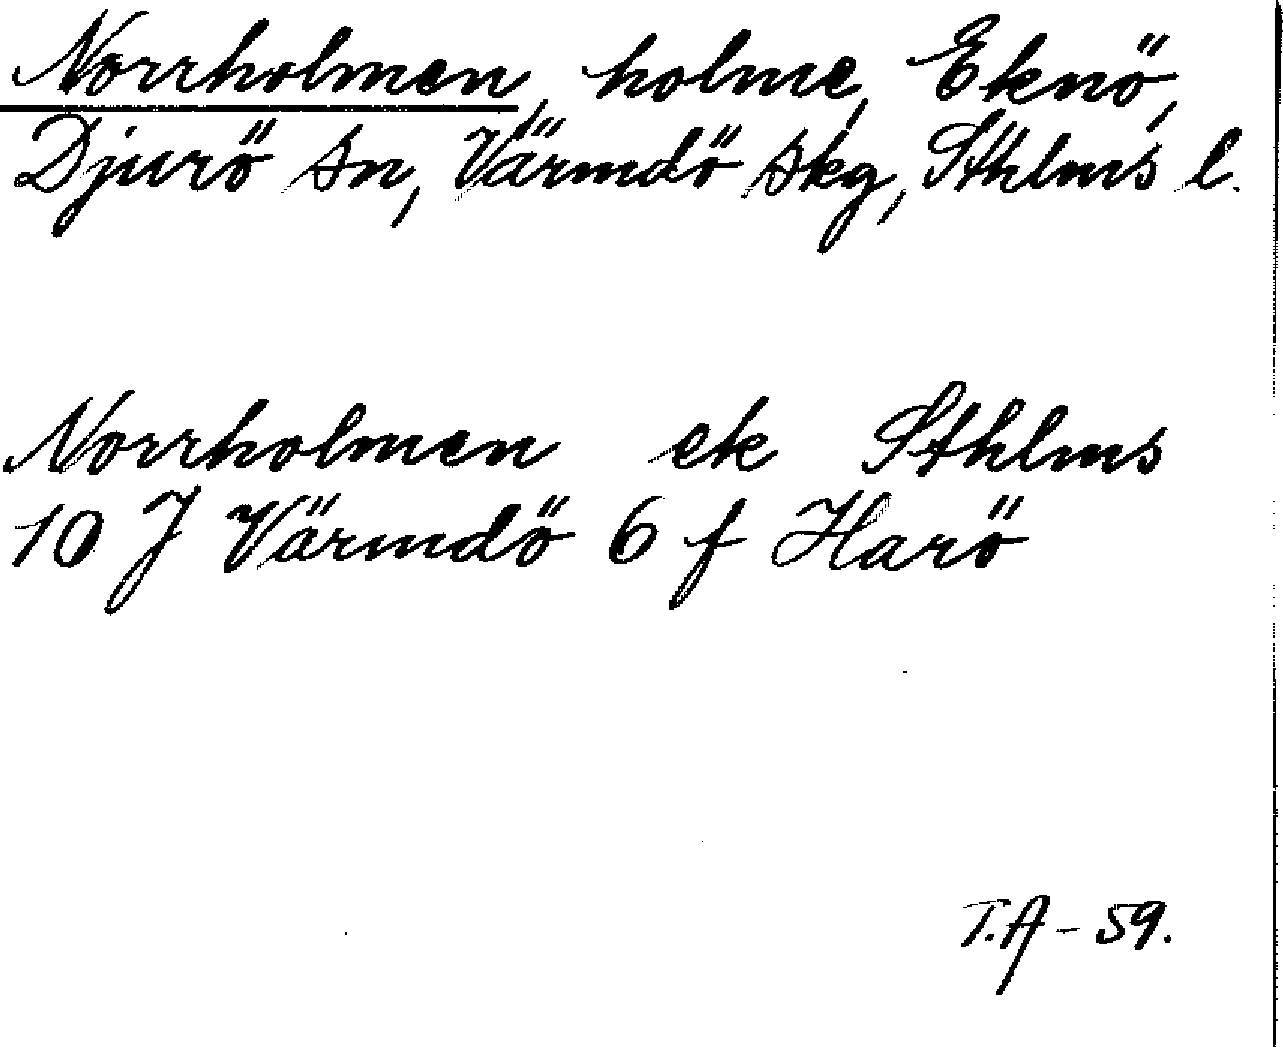 Norrholmen, holme, Eknö,
Djurö sn, Värmdö skg, Sthlms l.
Norrholmen ek Sthlms
10 J Värmdö 6 f Harö
T.A - 59.